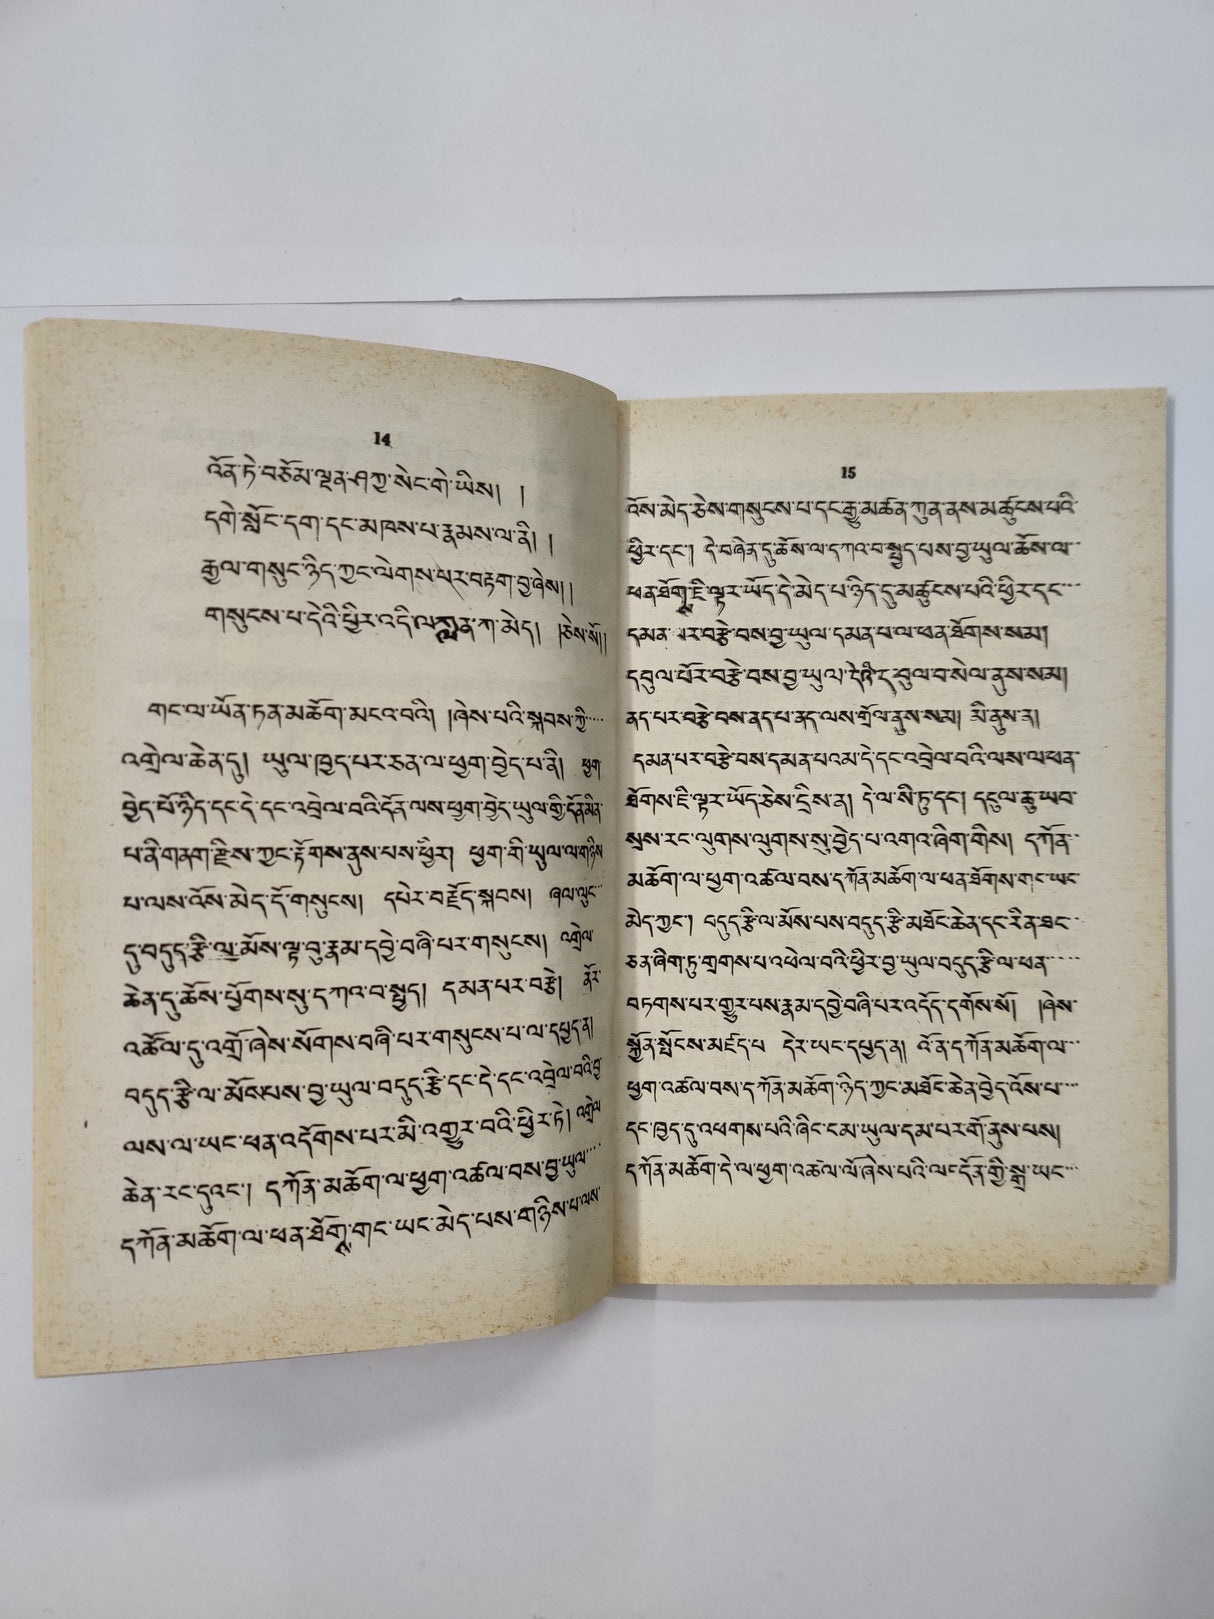 14
འོན་ཏེ་བཅོམ་ལྡན་ཤཀྱ་སེང་གེ་ཡིས། །
དགེ་སློང་དག་དང་མཁས་པ་རྣམས་ལ་ནི། །
རྒྱལ་གསུང་ཉིད་ཀྱང་ལེགས་པར་བརྟག་བྱ་ཞེས། །
གསུངས་པ་དེའི་ཕྱིར་འདི་ལ་ཀླན་ཀ་མེད། །ཅེས་སོ། །
གང་ལ་ཡོན་ཏན་མཆོག་མངའ་བའི། །ཞེས་པའི་སྐབས་ཀྱི་····
འགྲེལ་ཆེན་དུ། ཡུལ་ཁྱད་པར་ཅན་ལ་ཕྱག་བྱེད་པ་ནི། ཕྱག
བྱེད་པོ་ཉིད་དང་དེ་དང་འབྲེལ་བའི་དོན་ལས་ཕྱག་བྱེད་ཡུལ་གྱི་དོན་མིན་
པ་ནི་གནག་རྫིས་ཀྱང་རྟོགས་ནུས་པས་ཕྱིར། ཕྱག་གི་ཡུལ་ལ་གཉིས
པ་ལས་འོས་མེད་དོ་གསུངས། དཔེར་བརྗོད་སྐབས། ཞལ་ལུང་··
དུ་བདུད་རྩི་ལ་མོས་ལྟ་བུ་རྣམ་དབྱེ་བཞི་པར་གསུངས། འགྲེལ་
ཆེན་དུ་ཆོས་ཕྱོགས་སུ་དཀའ་བ་སྤྱད། དམན་པར་བརྩེ། ནོར་
འཚོལ་དུ་འགྲོ་ཞེས་སོགས་བཞི་པར་གསུངས་པ་ལ་དཔྱད་ན།
བདུད་རྩི་ལ་མོསཔས་བྱ་ཡུལ་བདུད་རྩི་དང་དེ་དང་འབྲེལ་བའི་བྱ་
ལས་ལ་ཡང་ཕན་འདོགས་པར་མི་འགྱུར་བའི་ཕྱིར་ཏེ། འགྲེལ
ཆེན་རང་དུའང་། དཀོན་མཆོག་ལ་ཕྱག་འཚལ་བས་བྱ་ཡུལ་····
དཀོན་མཆོག་ལ་ཕན་ཐོགྶ་གང་ཡང་མེད་པས་གཉིས་པ་ལས་
15
འོས་མེད་ཅེས་གསུངས་པ་དང་རྒྱུ་མཚན་ཀུན་ནས་མཚུངས་པའི་
ཕྱིར་དང་། དེ་བཞིན་དུ་ཆོས་ལ་དཀའ་བ་སྤྱད་པས་བྱ་ཡུལ་ཆོས་ལ་··
ཕན་ཐོགྶ་ཇི་ལྟར་ཡོད་དེ་མེད་པ་ཉིད་དུ་མཚུངས་པའི་ཕྱིར་དང་···
དམན་པར་བརྩེ་བས་བྱ་ཡུལ་དམན་པ་ལ་ཕན་ཐོགས་སམ།
དབུལ་པོར་བརྩེ་བས་བྱ་ཡུལ་དེའི་དབུལ་བ་སེལ་ནུས་སམ།
ནད་པར་བརྩེ་བས་ནད་པ་ནད་ལས་གྲོལ་ནུས་སམ། མི་ནུས་ན།
དམན་པར་བརྩེ་བས་དམན་པའམ་དེ་དང་འབྲེལ་བའི་ལས་ལ་ཕན་
ཐོགས་ཇི་ལྟར་ཡོད་ཅེས་དྲིས་ན། དེ་ལ་སི་ཏུ་དང་། དངུལ་ཆུ་ཡབ་
སྲས་རང་ལུགས་ལུགས་སུ་བྱེད་པ་འགའ་ཞིག་གིས། དཀོན་··
མཆོག་ལ་ཕྱག་འཚལ་བས་དཀོན་མཆོག་ལ་ཕན་ཐོགས་གང་ཡང་
མེད་ཀྱང་། བདུད་རྩི་ལ་མོས་པས་བདུད་རྩི་མཐོང་ཆེན་དང་རིན་ཐང་··
ཅན་ཞིག་ཏུ་གྲགས་པ་འཕེལ་བའི་ཕྱིར་བྱ་ཡུལ་བདུད་རྩི་ལ་ཕན་····
བཏགས་པར་གྱུར་པས་རྣམ་དབྱེ་བཞི་པར་འདོད་དགོས་སོ། །ཞེས་
སྐྱོན་སྤོངས་མཛད་པ དེར་ཡང་དཔྱད་ན། འོ་ན་དཀོན་མཆོག་ལ་··
ཕྱག་འཚལ་བས་དཀོན་མཆོག་ཉིད་ཀྱང་མཐོང་ཆེན་བྱེད་འོས་པ་···
དང་ཁྱད་དུ་འཕགས་པའི་ཞིང་ངམ་ཡུལ་དམ་པར་གོ་ནུས་པས།
དཀོན་མཆོག་དེ་ལ་ཕྱག་འཚལ་ལོ་ཞེས་པའི་ལ་དོན་གྱི་སྒྲ་ཡང་···